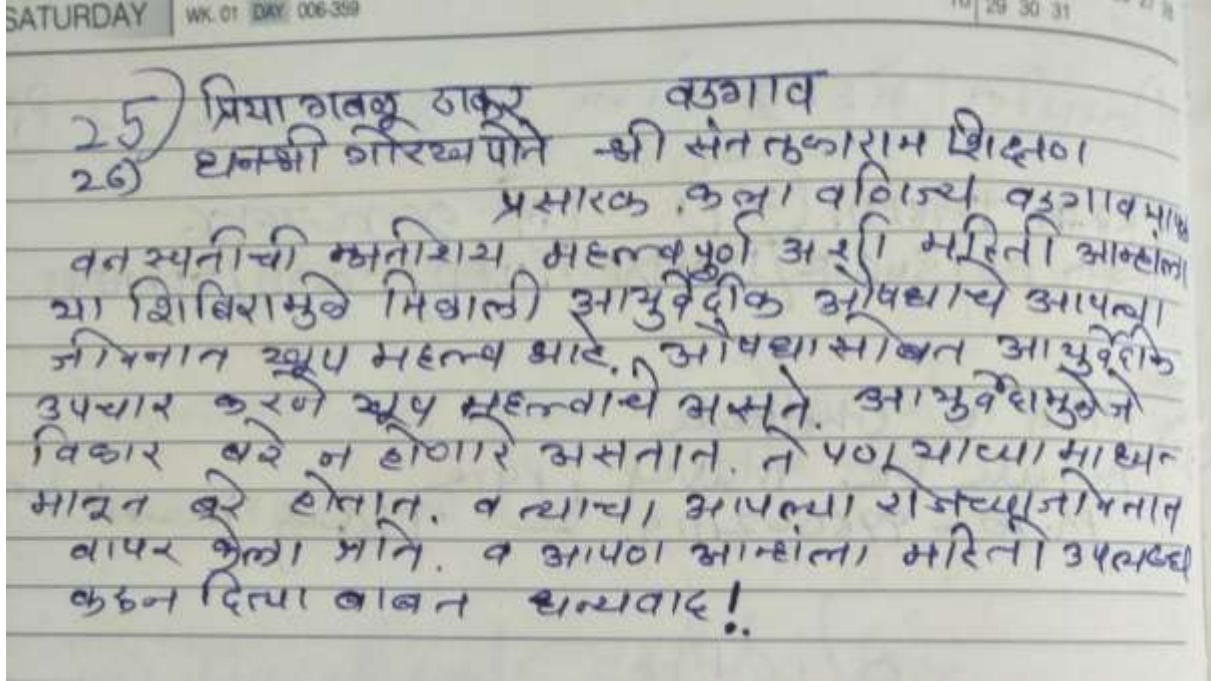 SATURDAY WK. 01 DAY 006-359 29 30 31
25) प्रिया गबळू ठाकूर वडगाव
26) धनश्री गोरख पोते श्री संत तुकाराम शिक्षण
प्रसारक कला वाणिज्य वडगाव
वनस्पतीची अतीशय महत्वपूर्ण अशी महिती आम्हांला
या शिबिरामुळे मिळाली आयुर्वेदीक औषधाचे आपल्या
जीवनात खूप महत्व आहे. औषधासोबत आयुर्वेदीक
उपचार करणे खूप महत्वाचे असते. आयुर्वेदामुळे जे
विकार बरे न होणारे असतात. ते पण याच्या माध्य-
मातून बरे होतात. व त्याचा आपल्या रोजच्या जीवनात
वापर केला जाते. व आपण आम्हांला महिती उपलब्ध
करून दिल्या बाबत धन्यवाद!